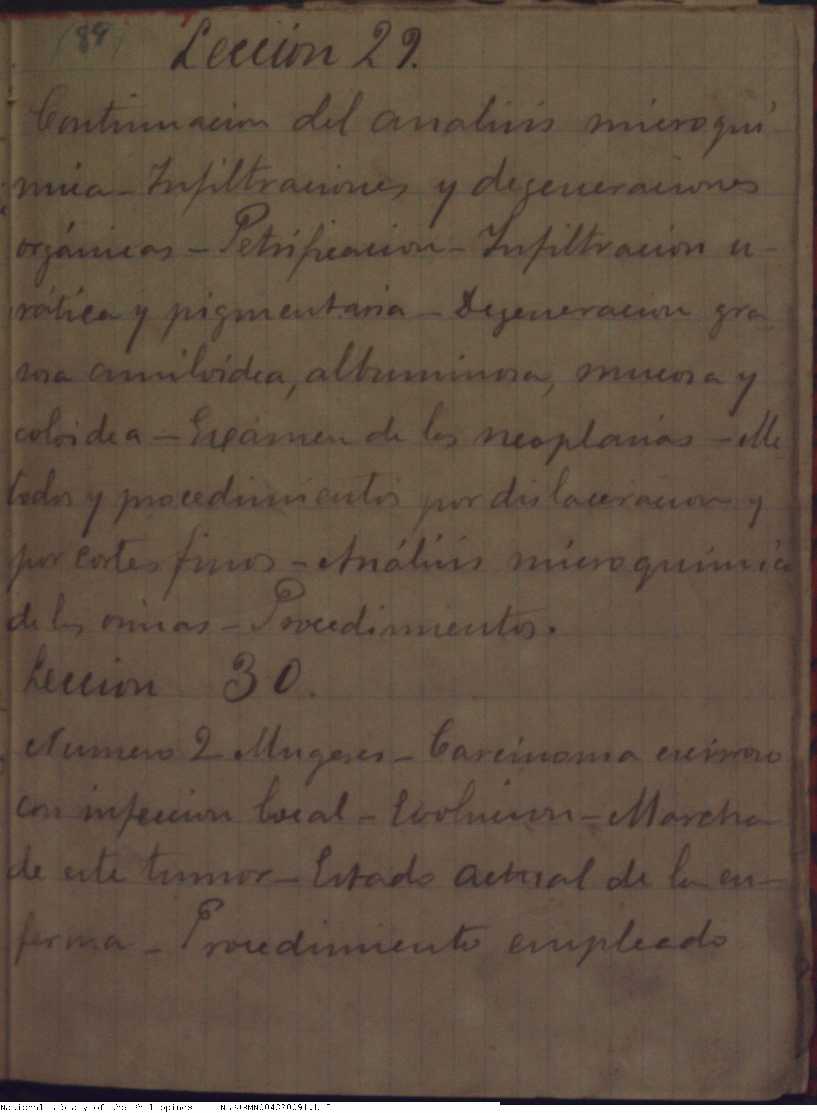 (89)
Leccion 29.
Continuacion del analisis microquí-
mica - Infiltraciones y degeneraciones
orgánicas - Petrificacion - Infiltracion u-
rática y pigmentaria - Degeneracion gra
sosa amiloídea, albuminosa, mucosa y
coloidea - Exámen de los neoplasias - Me
todos y procedimientos por dislaceracion y
por cortes finos - Análisis microquímica
de las orinas - Procedimientos.
Leccion 30.
Numero 2 Mugeres - Carcinoma escirroso
con infeccion local - Evolucion - Marcha
de este tumor - Estado actual de la en-
ferma - Procedimiento empleado
National Library of the Philippines